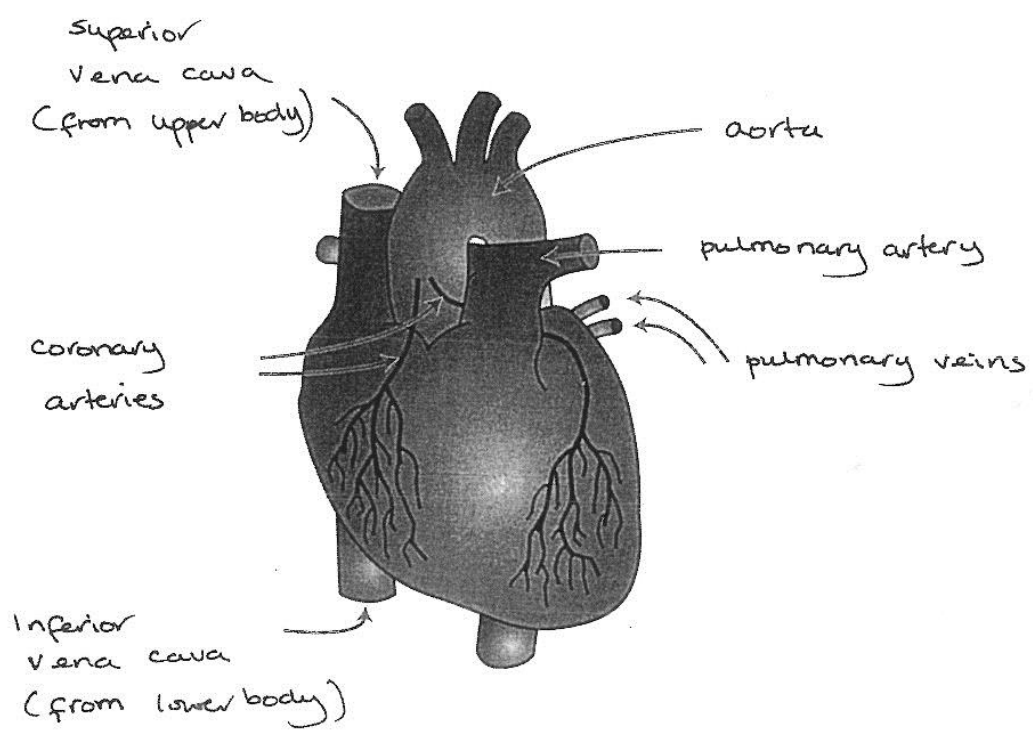 Superior
vena cava
(from upper body)
aorta
pulmonary artery
coronary
arteries
pulmonary veins
Inferior
vena cava
(from lower body)